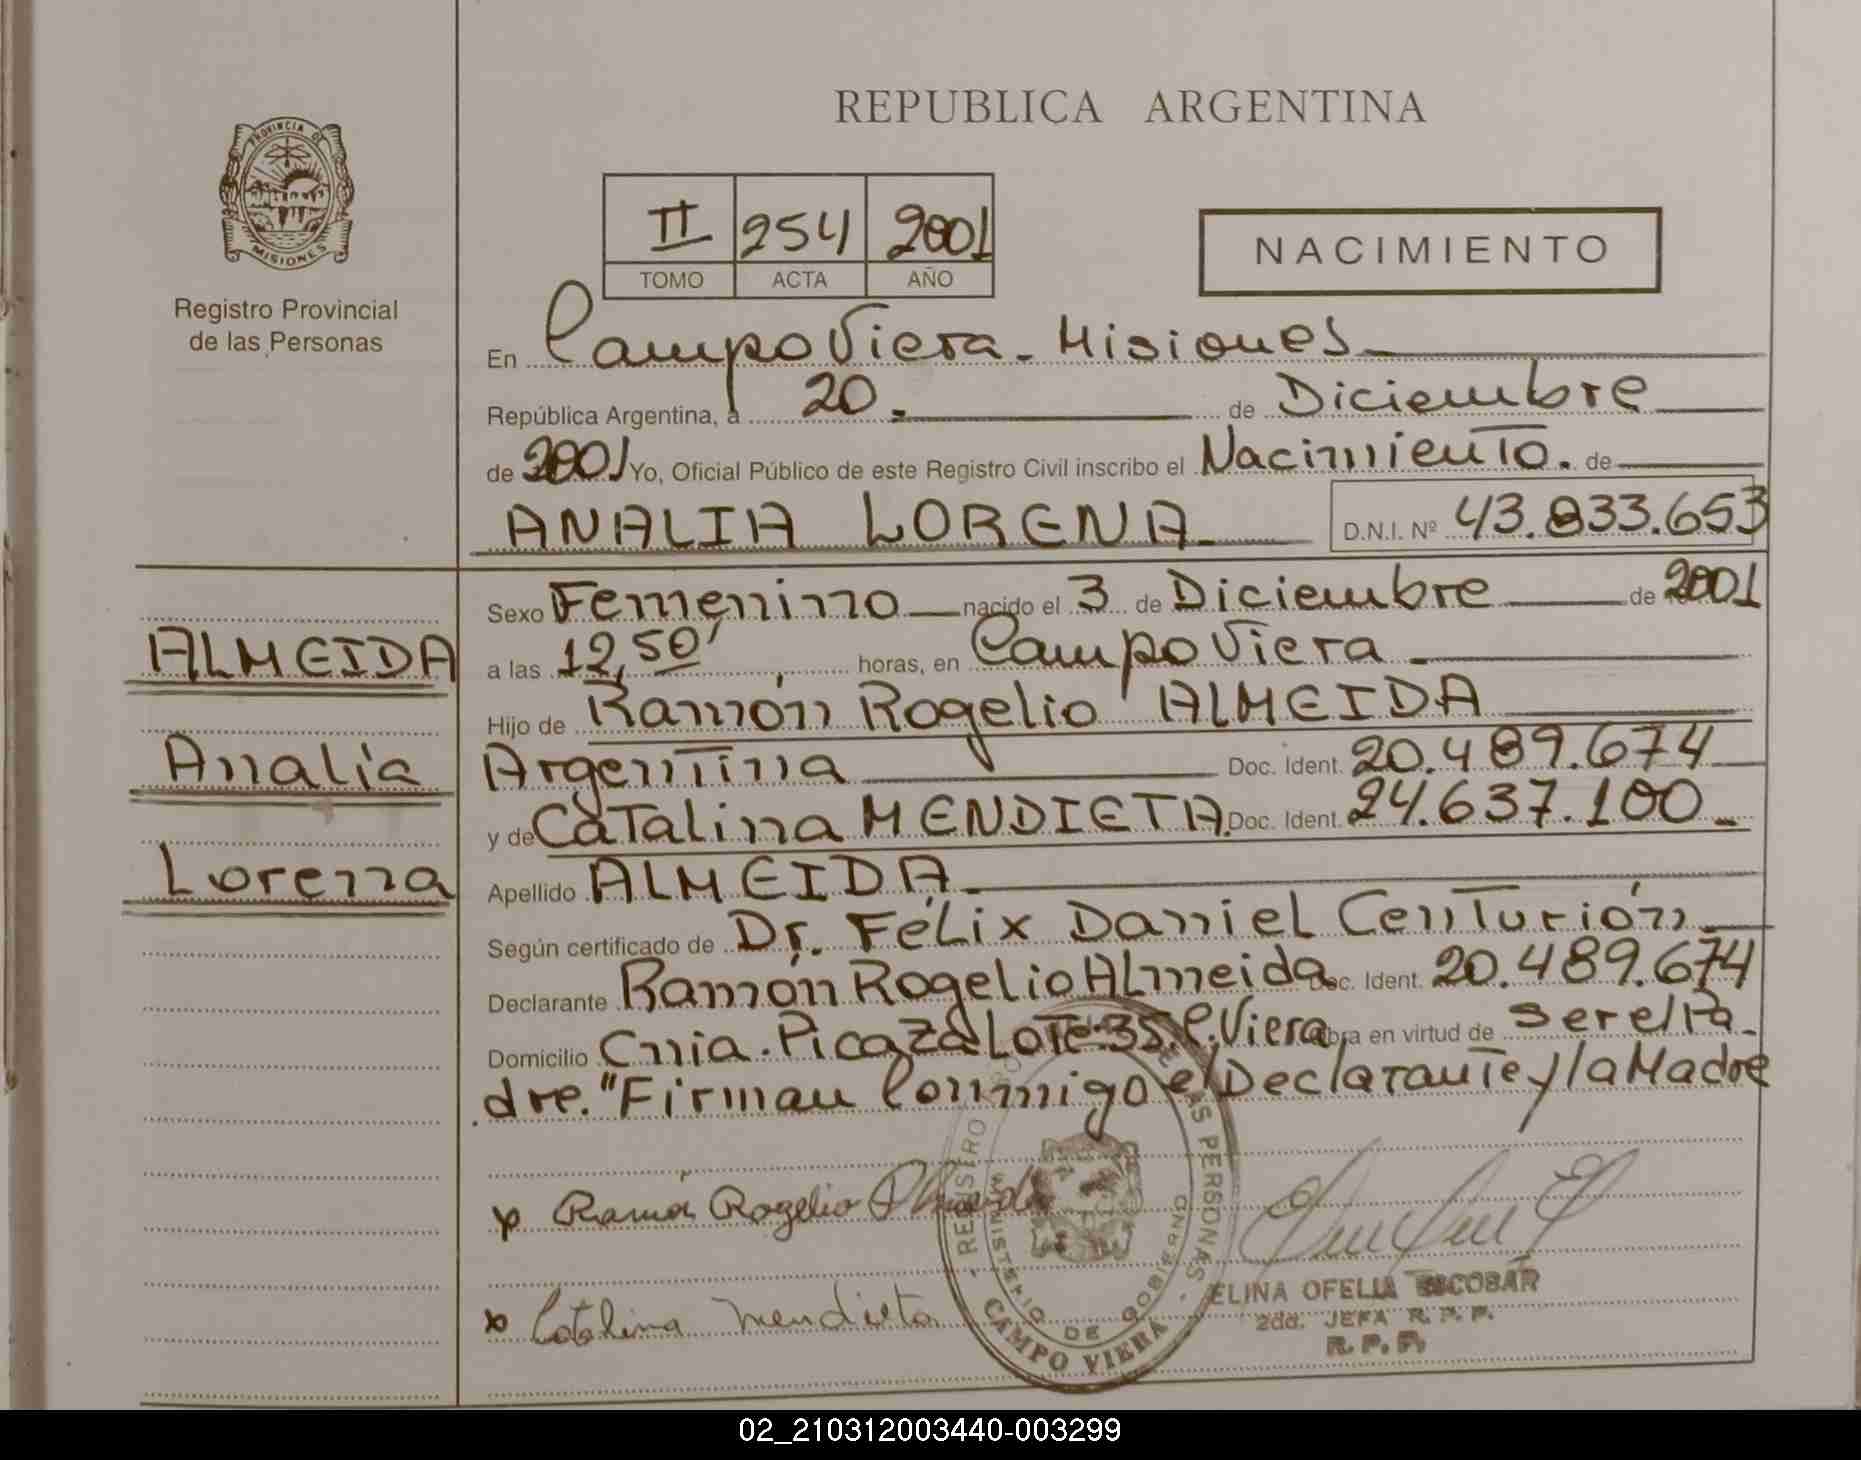 REPUBLICA ARGENTINA
PROVINCIA DE
MISIONES
Registro Provincial
de las Personas
II 254 2001
TOMO ACTA AÑO
NACIMIENTO
En Campo Viera - Misiones
República Argentina, a 20.- de Diciembre
de 2001 Yo, Oficial Público de este Registro Civil inscribo el Nacimiento. de
ANALIA LORENA D.N.I. Nº 43.833.653
Sexo Femenino nacido el 3 de Diciembre de 2001
ALMEIDA
a las 12,50' horas, en Campo Viera
Hijo de Ramón Rogelio ALMEIDA
Analía
Argentina Doc. Ident. 20.489.674
y de Catalina MENDIETA. Doc. Ident. 24.637.100
Lorena
Apellido ALMEIDA.
Según certificado de Dr. Félix Daniel Centurión
Declarante Ramón Rogelio Almeida Doc. Ident. 20.489.674
Domicilio Cnia. Picaza Lote 35. C. Viera Obra en virtud de ser el Pa-
dre. "Firman Conmigo el Declarante y la Madre
Ramón Rogelio Almeida
Catalina Mendieta
REGISTRO PERSONAS
MINISTERIO DE GOBIERNO
CAMPO VIERA
ELINA OFELIA ESCOBAR
2da. JEFA R.P.P.
R.P.P.
02_210312003440-003299